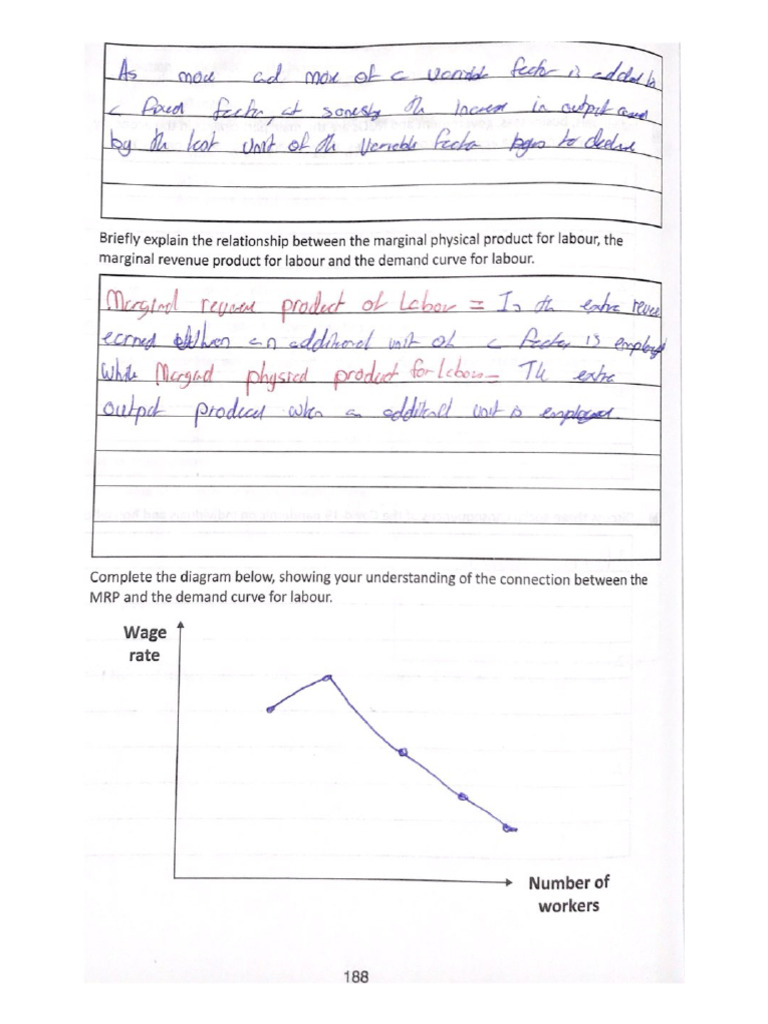 As more and more of a variable factor is added to
a fixed factor, at some the increase in output
by the last unit of the variable factor begins to decline
Briefly explain the relationship between the marginal physical product for labour, the
marginal revenue product for labour and the demand curve for labour.
Marginal revenue product of Labour = Is the extra
earned when an additional unit of a factor is employed
while Marginal physical product for labour = The extra
output produced when an additional unit is employed.
Complete the diagram below, showing your understanding of the connection between the
MRP and the demand curve for labour.
Wage
rate
Number of
workers
188